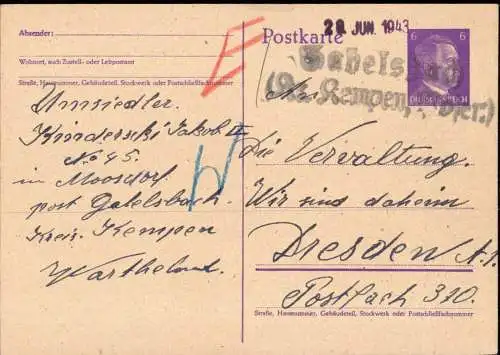 Absender:
Wohnort, auch Zustell- oder Leitpostamt
Straße, Hausnummer, Gebäudeteil, Stockwerk oder Postschließfachnummer
Umsiedler
Kinderski Jakob II
No 45.
in Moosdorf
post Gabelsbach
Kreis. Kempen
Wartheland.
Postkarte
29 JUN. 1943
6 6
DEUTSCHES REICH
(Kr. Kempen,
An
Die Verwaltung.
Wir sind daheim
Dresden A. 1.
Postfach 310.
Straße, Hausnummer, Gebäudeteil, Stockwerk oder Postschließfachnummer